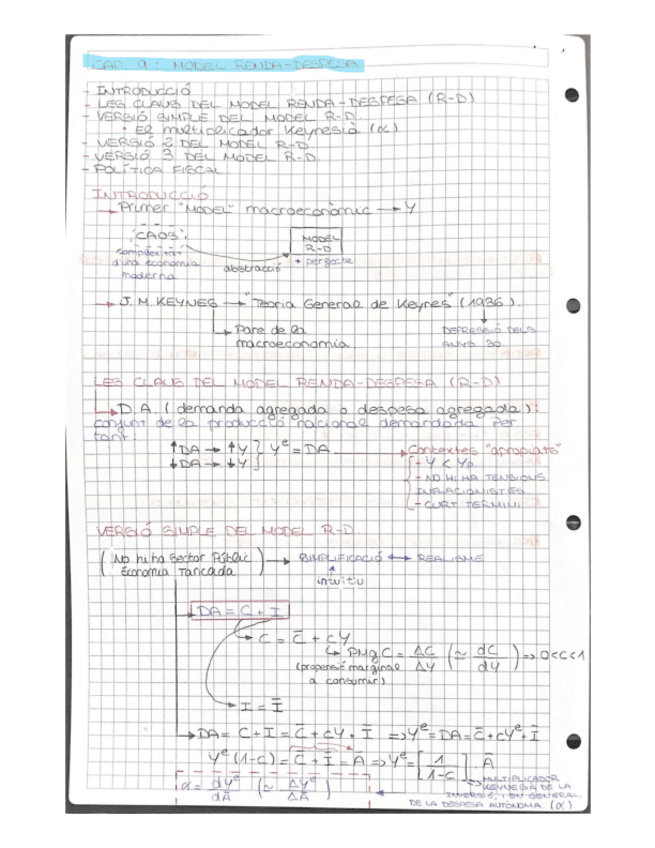 CAP. 9: MODEL RENDA-DESPESA
- INTRODUCCIÓ
- LES CLAUS DEL MODEL RENDA-DESPESA (R-D)
- VERSIÓ SIMPLE DEL MODEL R-D.
* El multiplicador Keynesià (α)
- VERSIÓ 2 DEL MODEL R-D.
- VERSIÓ 3 DEL MODEL R-D.
- POLÍTICA FISCAL
INTRODUCCIÓ
→ Primer "MODEL" macroeconòmic → Y
"CAOS" MODEL R-D
complexitat d'una economia moderna
abstracció
+ perfecte
→ J.M. KEYNES → "Teoria General de Keynes" (1936).
→ Pare de la macroeconomia
DEPRESSIÓ DELS ANYS 30
LES CLAUS DEL MODEL RENDA-DESPESA (R-D)
→ D.A. (demanda agregada o despesa agregada):
conjunt de la producció nacional demandada. Per
tant:
↑DA → ↑Y } Yᵉ = DA → Contextes "apropiats"
↓DA → ↓Y
- Y < Yp
- NO HI HA TENSIONS
INFLACIONISTES
- CURT TERMINI
VERSIÓ SIMPLE DEL MODEL R-D
(No hi ha Sector Públic
Economia Tancada) → SIMPLIFICACIÓ ↔ REALISME
intuïtiu
→ DA = C + I
→ C = C̄ + cY
→ PMgC = ΔC/ΔY (≃ dC/dY) ⇒ 0<c<1
(propensió marginal
a consumir)
→ I = Ī
→ DA = C + I = C̄ + cY + Ī ⇒ Yᵉ = DA = C̄ + cYᵉ + Ī
Yᵉ (1-c) = C̄ + Ī = Ā ⇒ Yᵉ = [1/(1-c)] · Ā
α = dYᵉ/dĀ (≃ ΔYᵉ/ΔĀ)
→ MULTIPLICADOR
KEYNESIÀ DE LA
INVERSIÓ, I EN GENERAL,
DE LA DESPESA AUTÒNOMA. (α)